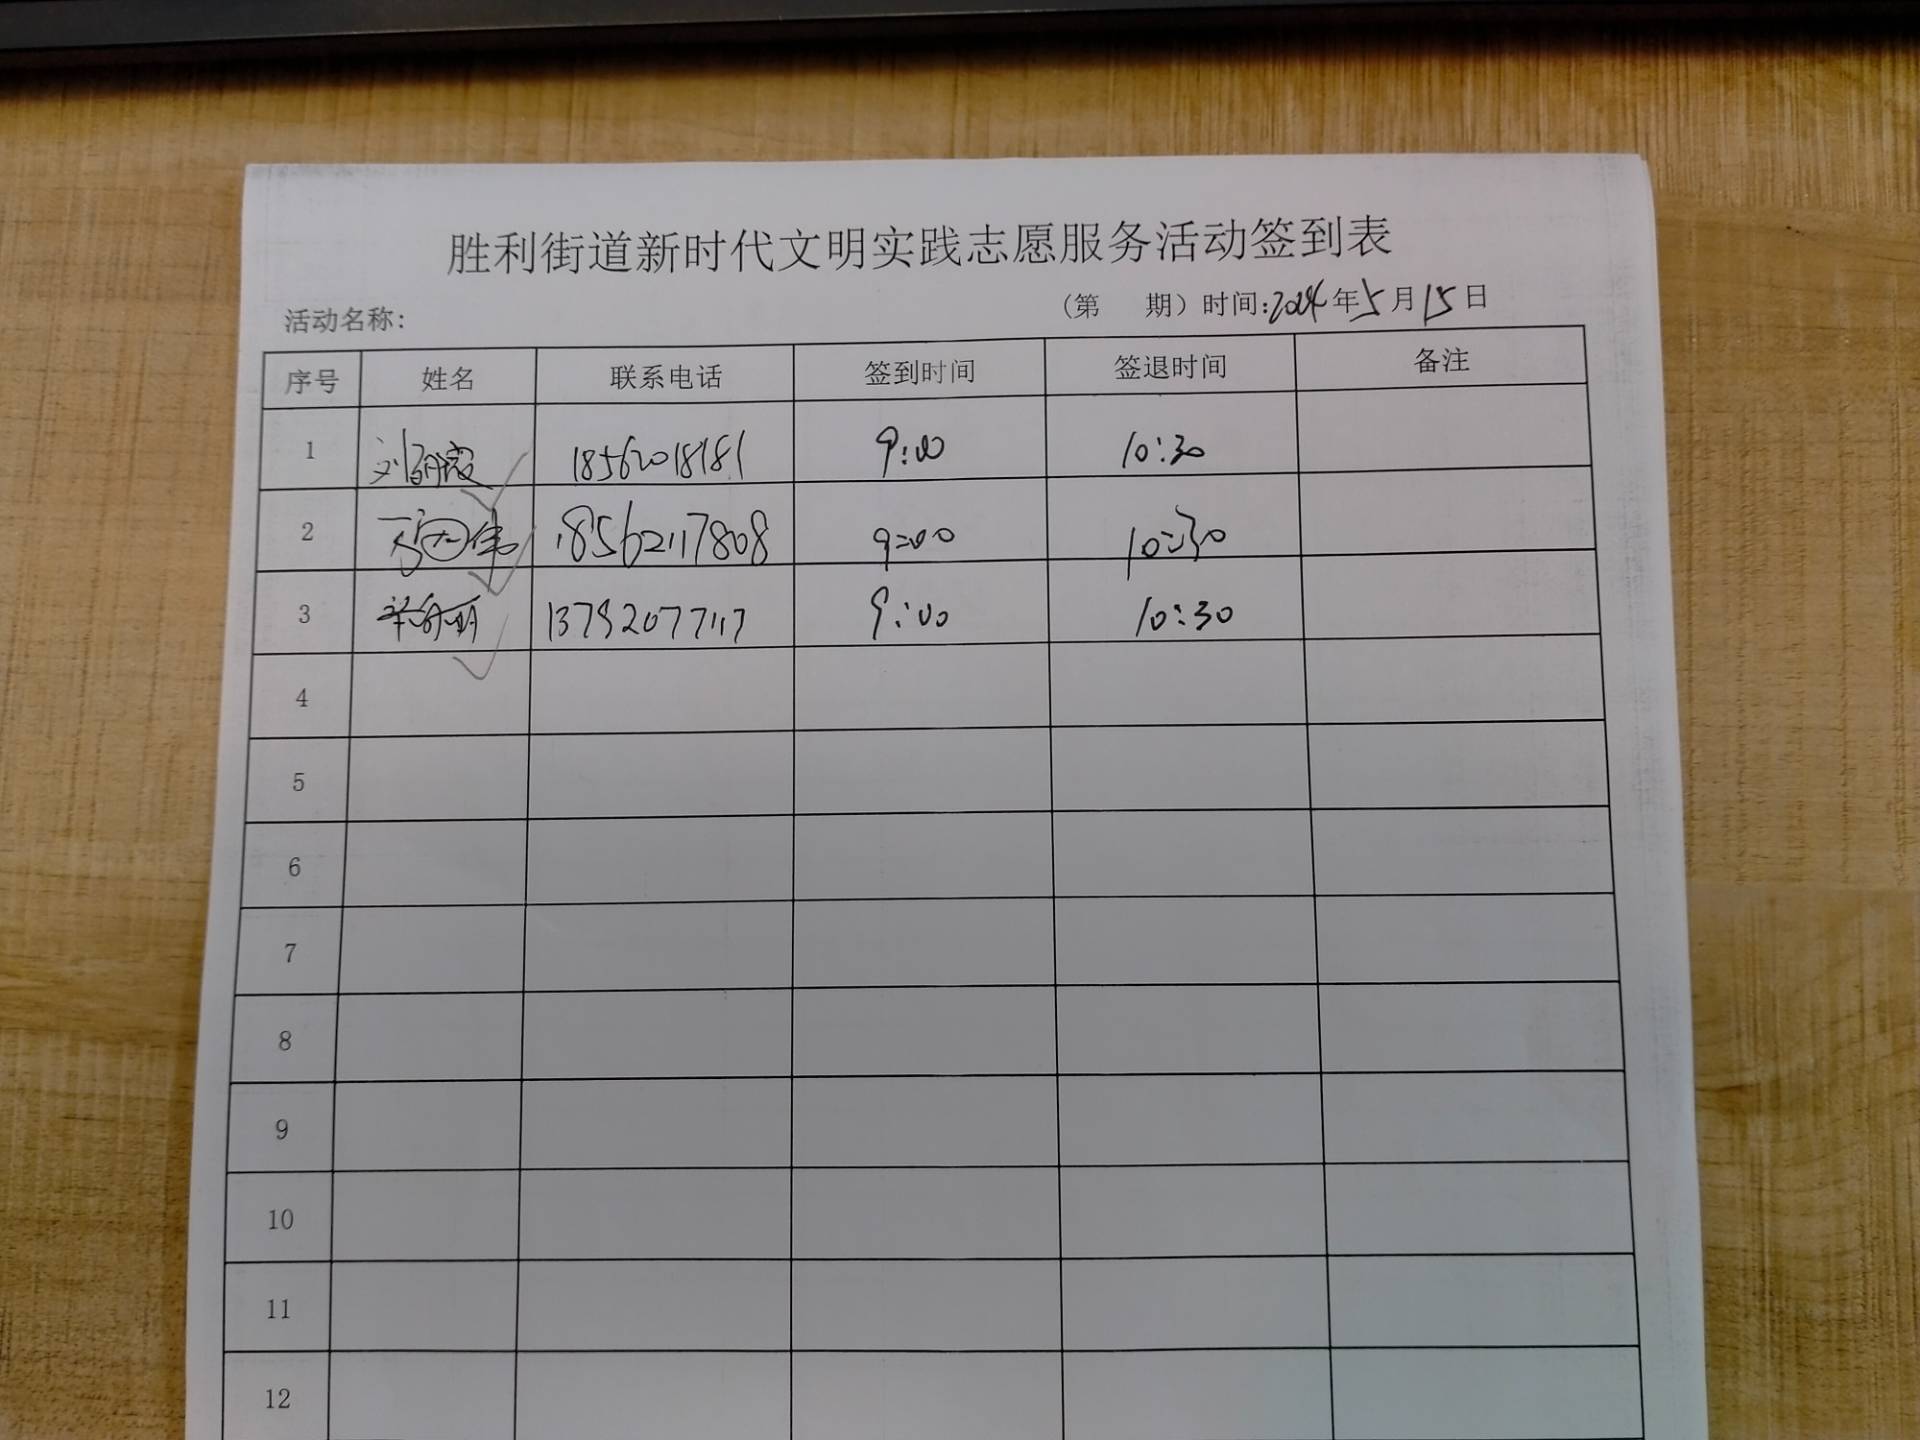 胜利街道新时代文明实践志愿服务活动签到表
活动名称: (第 期) 时间:2024年5月15日
序号 姓名 联系电话 签到时间 签退时间 备注
1 刘 18562018181 9:00 10:30
2 18562117808 9:00 10:30
3 9:00 10:30
4
5
6
7
8
9
10
11
12